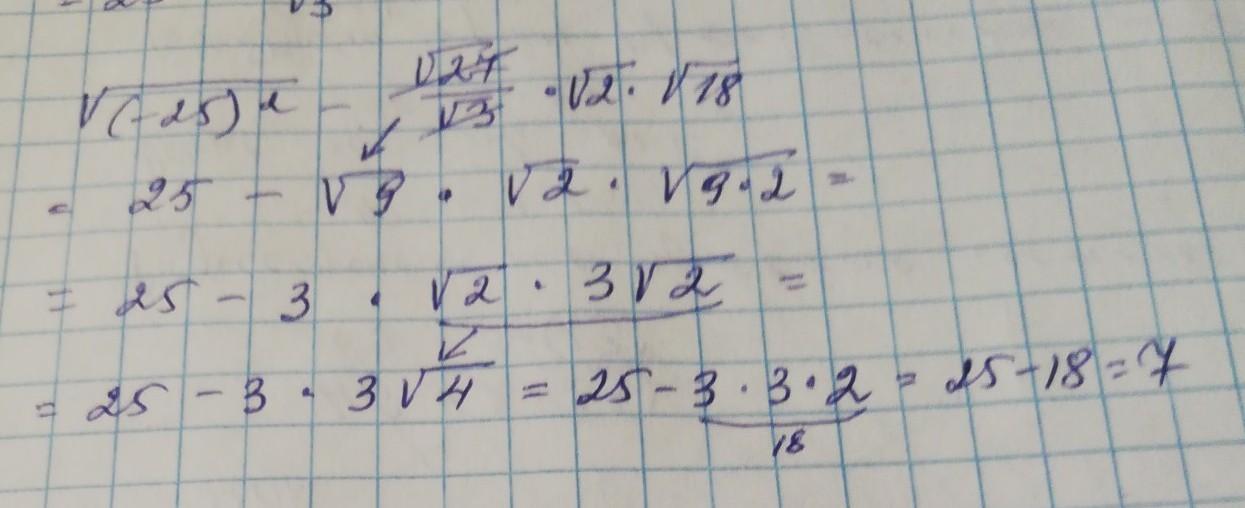 √3
√(-25)² - √27/√3 · √2 · √18
= 25 - √9 · √2 · √9·2 =
= 25 - 3 · √2 · 3√2 =
= 25 - 3 · 3√4 = 25 - 3·3·2 = 25-18=7
18